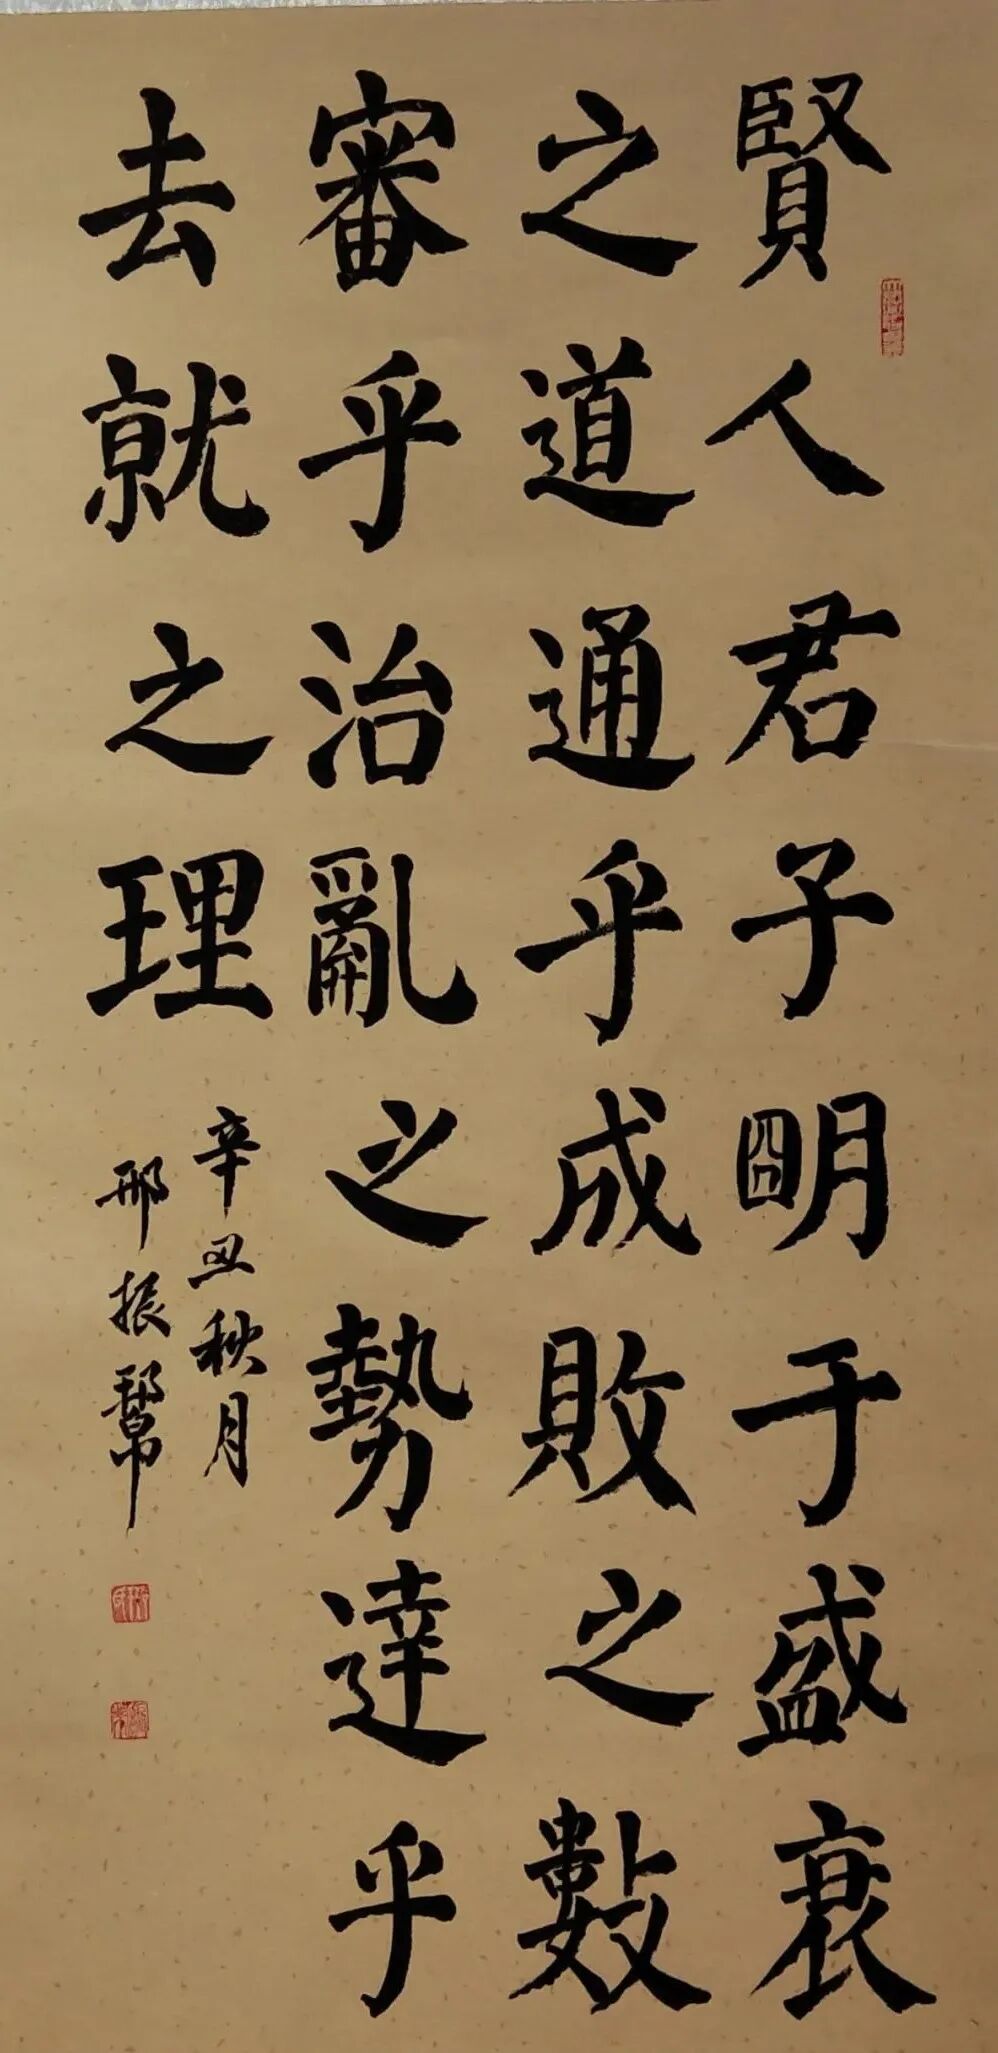 賢人君子明于盛衰
之道通乎成敗之數
審乎治亂之勢達乎
去就之理
辛丑秋月
邢振幫